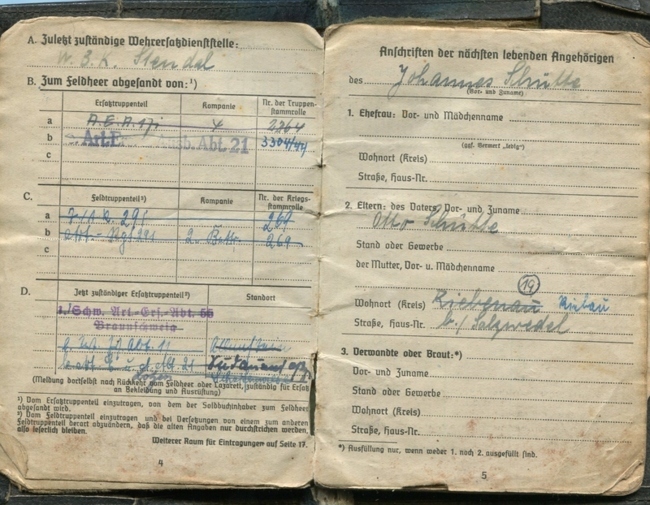 A. Zuletzt zuständige Wehrersatzdienststelle:
W. B. K. Stendal
B. Zum Feldheer abgesandt von:¹)
Ersatztruppenteil
Kompanie
Nr. der Truppenstammrolle
a A.E.A. 171 4 2264
b Art.E Ausb.Abt. 21 3304/44
c
C.
Feldtruppenteil²)
Kompanie
Nr. der Kriegsstammrolle
a 291 269
b Art.-Rgt. 291 2. Battr. 269
c
D.
Jetzt zuständiger Ersatztruppenteil²)
Standort
1./Schw. Art.-Ers.-Abt. 66
Braunschweig
(Meldung dortselbst nach Rückkehr vom Feldheer oder Lazarett, zuständig für Ersatz an Bekleidung und Ausrüstung)
¹) Vom Ersatztruppenteil einzutragen, von dem der Soldbuchinhaber zum Feldheer
abgesandt wird.
²) Vom Feldtruppenteil einzutragen und bei Versetzungen von einem zum anderen
Feldtruppenteil derart abzuändern, daß die alten Angaben nur durchstrichen werden,
also leserlich bleiben.
Weiterer Raum für Eintragungen auf Seite 17.
4
Anschriften der nächsten lebenden Angehörigen
des Johannes Schulte
(Vor- und Zuname)
1. Ehefrau: Vor- und Mädchenname
(ggf. Vermerk „ledig“)
Wohnort (Kreis)
Straße, Haus-Nr.
2. Eltern: des Vaters, Vor- und Zuname
Otto Schulte
Stand oder Gewerbe
der Mutter, Vor- u. Mädchenname
19
Wohnort (Kreis) Riebenau Riebau
Straße, Haus-Nr. b./ Salzwedel
3. Verwandte oder Braut:*)
Vor- und Zuname
Stand oder Gewerbe
Wohnort (Kreis)
Straße, Haus-Nr.
*) Ausfüllung nur, wenn weder 1. noch 2. ausgefüllt sind.
5